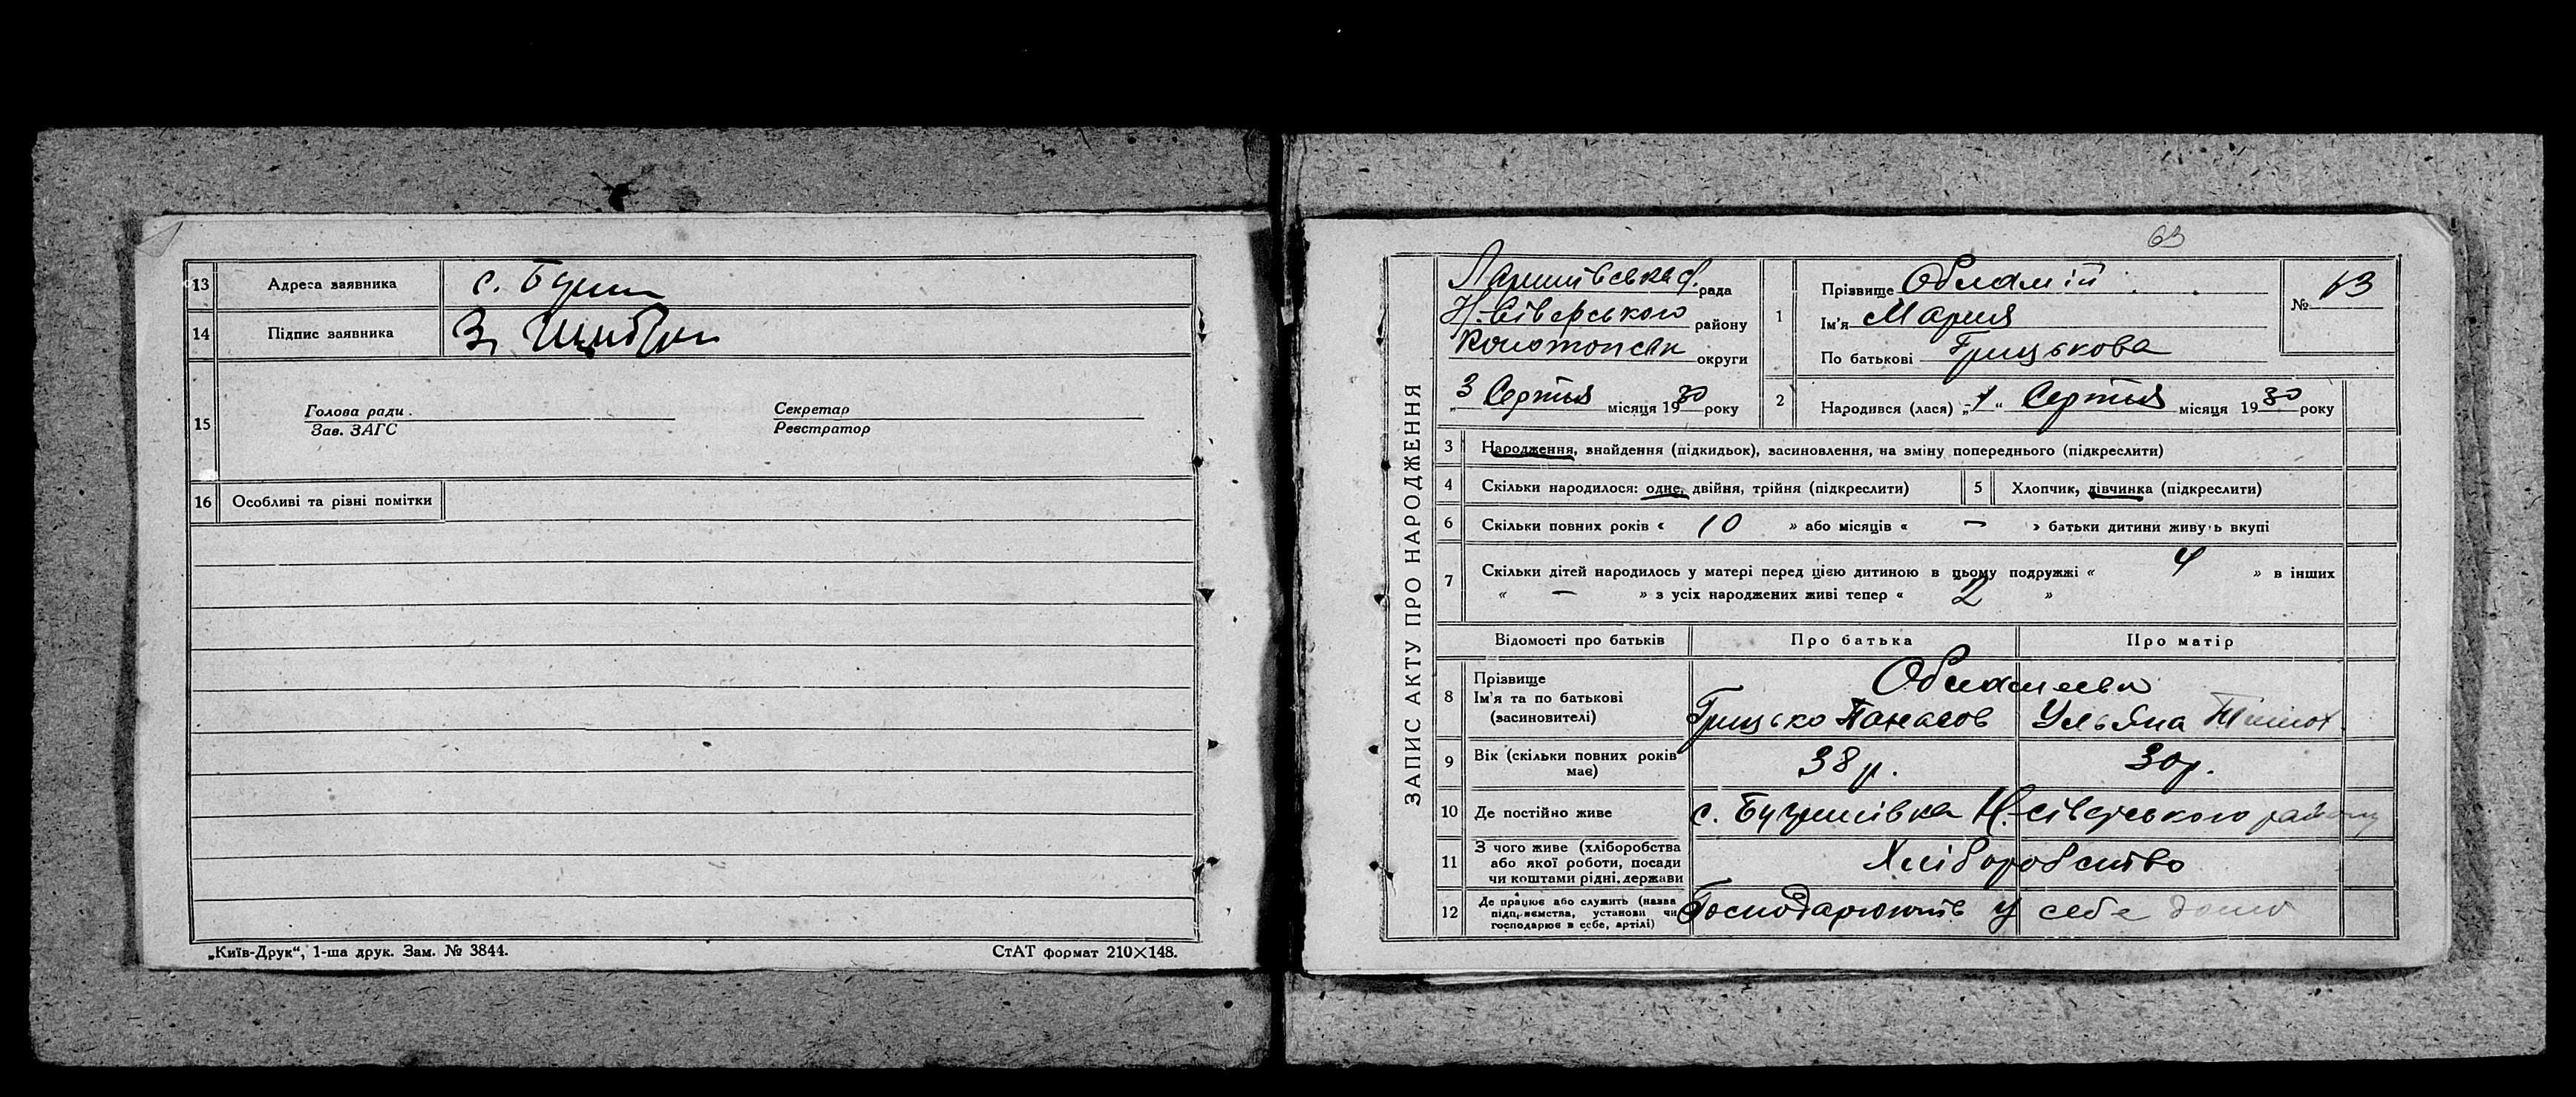 13 Адреса заявника с. Буги
14 Підпис заявника За
15
Голова ради. Секретар
Зав. ЗАГС Реєстратор
16 Особливі та різні помітки
„Київ-Друк“, 1-ша друк. Зам. № 3844. СтАТ формат 210×148.
63
ЗАПИС АКТУ ПРО НАРОДЖЕННЯ
рада
Н.-Сіверського району
Конотопськ округи
3 Серпня місяця 1930 року
1 Прізвище Обламій
Ім'я Мария
По батькові Грицькова
№ 13
2 Народився (лася) „1“ Серпня місяця 1930 року
3 Народження, знайдення (підкидьок), засиновлення, на зміну попереднього (підкреслити)
4 Скільки народилося: одне, двійня, трійня (підкреслити) 5 Хлопчик, дівчинка (підкреслити)
6 Скільки повних років « 10 » або місяців « — » батьки дитини живуть вкупі
7 Скільки дітей народилось у матері перед цією дитиною в цьому подружжі « 4 » в інших
« — » з усіх народжених живі тепер « 2 »
Відомості про батьків Про батька Про матір
8 Прізвище
Ім'я та по батькові
(засиновителі) Грицько Панасов Ульяна Тимох
9 Вік (скільки повних років має) 38 р. 30 р.
10 Де постійно живе с. Н.-Сіверського району
11 З чого живе (хліборобства
або якої роботи, посади
чи коштами рідні, держави Хліборобство
12 Де працює або служить (назва
підприємства, установи чи
господарює в себе, артілі) Господарюють у себе дома